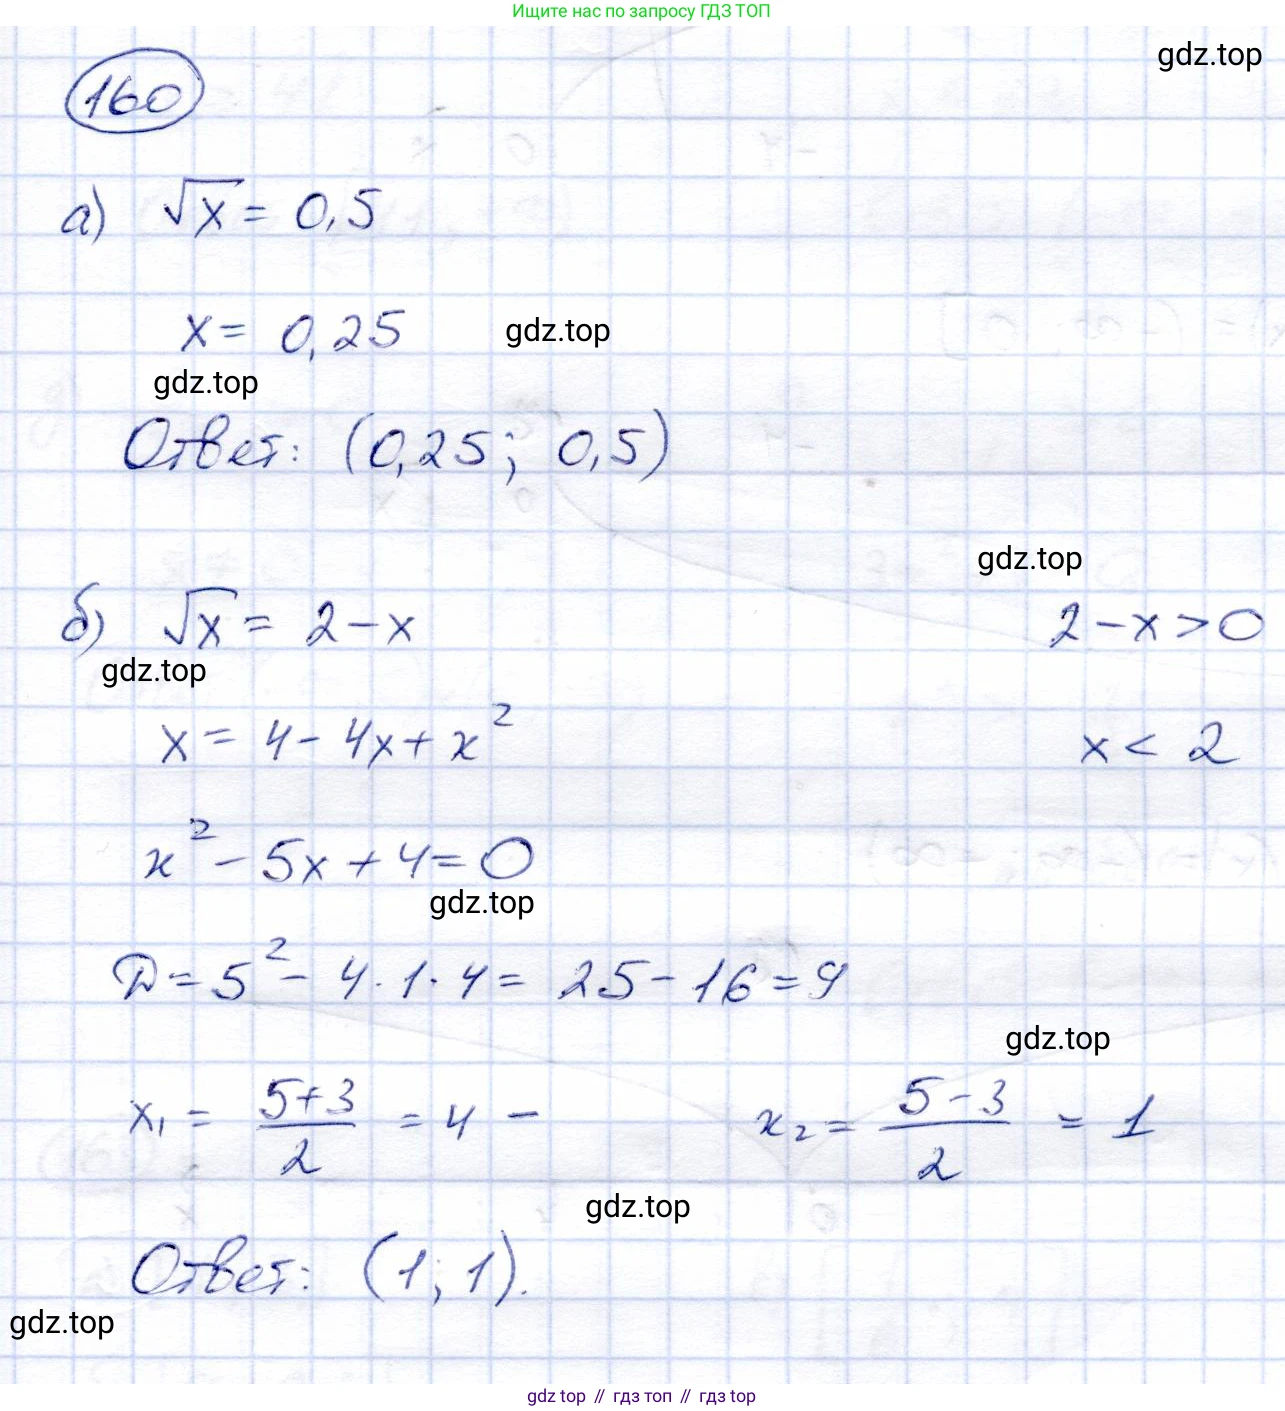 Ищите нас по запросу ГДЗ ТОП
gdz.top
160
а) √x = 0,5
x = 0,25
gdz.top
gdz.top
Ответ: (0,25; 0,5)
gdz.top
б) √x = 2 - x
2 - x > 0
gdz.top
x = 4 - 4x + x²
x < 2
x² - 5x + 4 = 0
gdz.top
D = 5² - 4 · 1 · 4 = 25 - 16 = 9
gdz.top
x₁ = (5+3)/2 = 4 –
x₂ = (5-3)/2 = 1
gdz.top
Ответ: (1; 1).
gdz.top
gdz top // гдз топ // гдз top